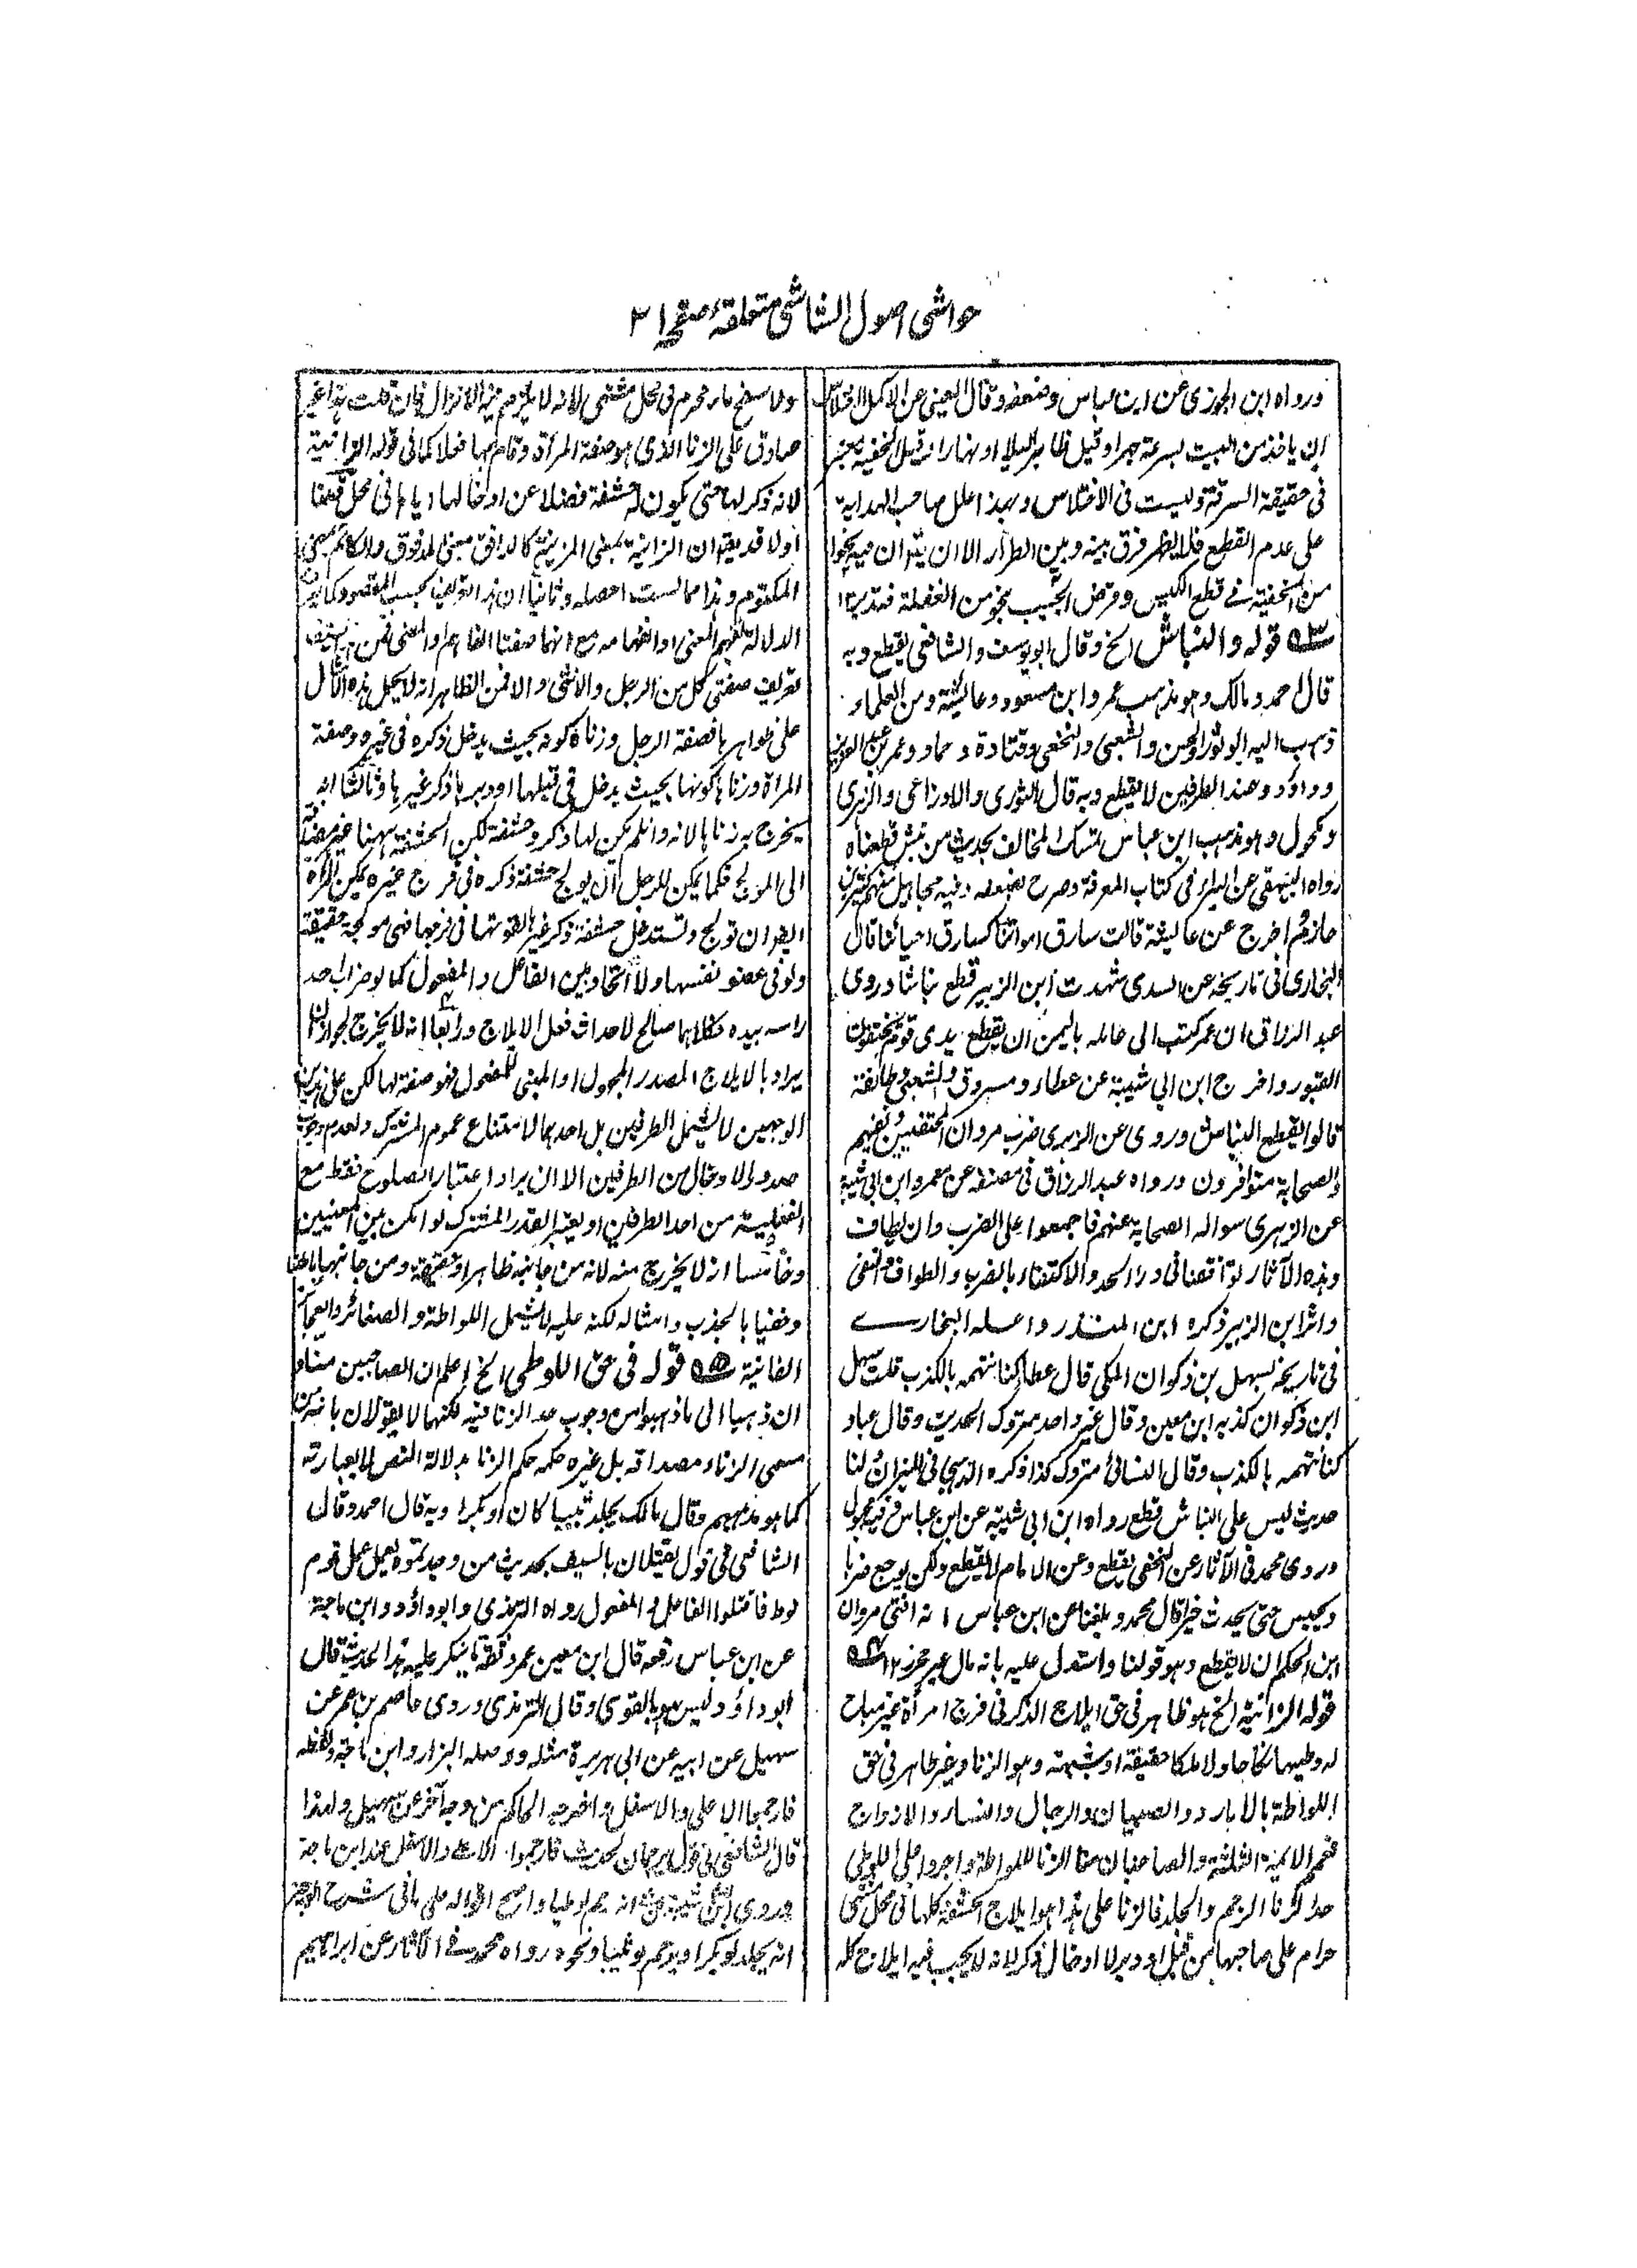 حواشی اصول الشاشی متعلقہ صفحہ ۳۱
ورواه ابن الجوزى عن ابن عباس وضعفه وقال العينى عن الاكمل الاختلاس
ان ياخذ من البيت بسرعة جهرا وقيل ظاهر ليلا او نهارا وقيل الخفية تعتبر
فى حقيقة السرقة وليست فى الاختلاس وبهذا علل صاحب الهداية
على عدم القطع فلا يظهر فرق بينه وبين الطرار الا ان يق ان فيه نحوا
من الخفية فى قطع الكيس وقرض الجيب بنحو من الغفلة فتدبر ۱۲
۵۳ قوله والنباش الخ وقال ابو يوسف والشافعى يقطع وبه
قال احمد ومالك وهو مذهب عمر وابن مسعود وعائشة ومن العلماء
ذهب اليه ابو ثور والحسن والشعبى والنخعى وقتادة وحماد وعمر بن عبد العزيز
وداؤد وعند الطرفين لا يقطع وبه قال الثورى والاوزاعى والزهرى
ومكحول وهو مذهب ابن عباس تمسك المخالف بحديث من نبش قطعناه
رواه البيهقى عن البراء فى كتاب المعرفة وصرح بضعفه وفيه مجاهيل منهم بشر بن
حازم ثم اخرج عن عائشة قالت سارق امواتنا كسارق احيائنا قال
البخارى فى تاريخه عن السدى شهدت ابن الزبير قطع نباشا وروى
عبد الرزاق ان عمر كتب الى عامله باليمن ان يقطع ايدى قوم يختفون
القبور واخرج ابن ابى شيبة عن عطاء ومسروق والشعبى وطائفة
قالوا يقطع النباش وروى عن الزهرى ضرب مروان المختفيين ونفيهم
والصحابة متوافرون ورواه عبد الرزاق فى مصنفه عن معمر وابن ابى شيبة
عن الزهرى سواله الصحابة عنهم فاجمعوا على الضرب وان يطاف
وهذه الآثار توافقنا فى درا الحد والاكتفاء بالضرب والطواف والنفى
واثر ابن الزبير ذكره ابن المنذر واعله البخارى
فى تاريخه بسهل بن ذكوان المكى قال عطاء كنا نتهمه بالكذب قلت سهل
ابن ذكوان كذبه ابن معين وقال غير واحد متروك الحديث وقال عباد
كنا نتهمه بالكذب وقال النسائى متروك كذا ذكره الذهبى فى الميزان ولنا
حديث ليس على النباش قطع رواه ابن ابى شيبة عن ابن عباس وفيه مجهول
وروى محمد فى الآثار عن النخعى يقطع وعن الامام لا يقطع ولكن يوجع ضربا
ويحبس حتى يحدث خيرا قال محمد وبلغنا عن ابن عباس انه افتى مروان
ابن الحكم ان لا يقطع وهو قولنا واستدل عليه بانه مال غير محرز ۱۲ ۵۴
قوله الزانية الخ هو ظاهر فى حق ايلاج الذكر فى فرج امرأة غير مباح
له وطيها نكاحا ولا ملكا حقيقة او شبهة وهو الزنا وغير ظاهر فى حق
اللواطة بالابارد والصبيان والرجال والنساء والازواج
فعم الائمة الثلثة والصاحبان معنا الزنا للواطة واجروا على اللوطى
حد الزنا الرجم والجلد فالزنا على هذا هو ايلاج الحشفة كلها فى محل مشتهى
حرام على صاحبها من قبل او دبر لا ادخال الذكر لانه لا يجب فيه ايلاج كله
ولا سفح ماء محرم فى محل مشتهى لانه لا يلزم فيه الانزال فان قلت هذا غير
صادق على الزنا الذى هو صفة المرأة وقام بها فعلا كما فى قوله الزانية
لانه لا ذكر لها حتى يكون له حشفة فضلا عن ادخالها اياه فى محل قلنا
اولا قد يقع ان الزانية بمعنى المزنية كالدافق بمعنى المدفوق والكاتم بمعنى
المكتوم وهذا مما لست احصله وثانيا ان هذا التعريف بحسب المقصود كما
الدلالة بفهم المعنى او انفهامه مع انهما صفتا الفاهم والمعنى فمن
تعريف صفتى كل من الرجل والانثى والا فمن الظاهر انه لا يحمل هذه الاقوال
على ظواهرها فصفة الرجل وزناه كونه بحيث يدخل ذكره فى غيره وصفة
المرأة وزناها كونها بحيث يدخل فى قبلها او دبرها ذكر غيرها وثالثا انه
يخرج به زناها لانه وان لم يكن لها ذكر وحشفة لكن الحشفة ههنا غير مضافة
الى المولج فكما يمكن للرجل ان يولج حشفة ذكره فى فرج غيره يمكن للمرأة
ايضا ان تولج وتستدخل حشفة ذكر غيرها بقوتها فى فرجها فهى مولجة حقيقة
ولو فى عضو نفسها ولا اتحاد بين الفاعل والمفعول كما لو ضرب احد
راسه بيده فكلاهما صالح لاحداث فعل الايلاج ورابعا انه لا يخرج لجواز ان
يراد بالايلاج المصدر المجهول او المبنى للمفعول فهو صفة لها لكن على هذين
الوجهين لا يشمل الطرفين بل احدهما لامتناع عموم المشترك ولعدم وجوب
صدور الادخال من الطرفين الا ان يراد اعتبار الصلوح فقط مع
الفعلية من احد الطرفين او يعتبر القدر المشترك لو امكن بين المعنيين
وخامسا انه لا يخرج منه لانه من جانبه ظاهرا وحقيقة ومن جانبها باطنا
وخفيا بالجذب وامثاله لكنه عليه لا يشمل اللواطة والصغائر والعجائز
الفانية ۵۵ قوله فى حق اللوطى الخ اعلم ان الصاحبين منا و
ان ذهبا الى ما ذهبوا من وجوب حد الزنا فيه لكنهما لا يقولان بانه من
مسمى الزنا ومصداقه بل غيره حكمه حكم الزنا بدلالة النص لا بعبارته
كما هو مذهبهم وقال مالك يجلد ثيبا كان او بكرا وبه قال احمد وقال
الشافعى فى قول يقتلان بالسيف بحديث من وجدتموه يعمل عمل قوم
لوط فاقتلوا الفاعل والمفعول رواه الترمذى وابو داؤد وابن ماجة
عن ابن عباس رفعه قال ابن معين عمرو ثقة ينكر عليه هذا الحديث قال
ابو داؤد وليس هو بالقوى وقال الترمذى وروى عاصم بن عمر عن
سهيل عن ابيه عن ابى هريرة مثله ووصله البزار وابن ماجة ولفظه
فارجموا الاعلى والاسفل واخرجه الحاكم من وجه آخر عن سهيل ولهذا
قال الشافعى فى قول يرجمان لحديث فارجموا الاعلى والاسفل عند ابن ماجة
وروى ابن ابى شيبة انه رجم لوطيا واصح اقواله على ما فى شرح الوجيز
انه يجلد لو بكرا ويرجم لو ثيبا ونحوه رواه محمد فى الآثار عن ابراهيم